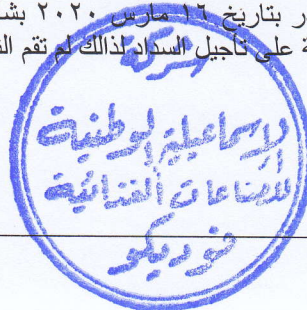 ر بتاريخ ١٦ مارس ٢٠٢٠ بشـ
ة على تأجيل السداد لذالك لم تقم الـ
شركة
الإسماعيلية الوطنية
للصناعات الغذائية
فوديكو